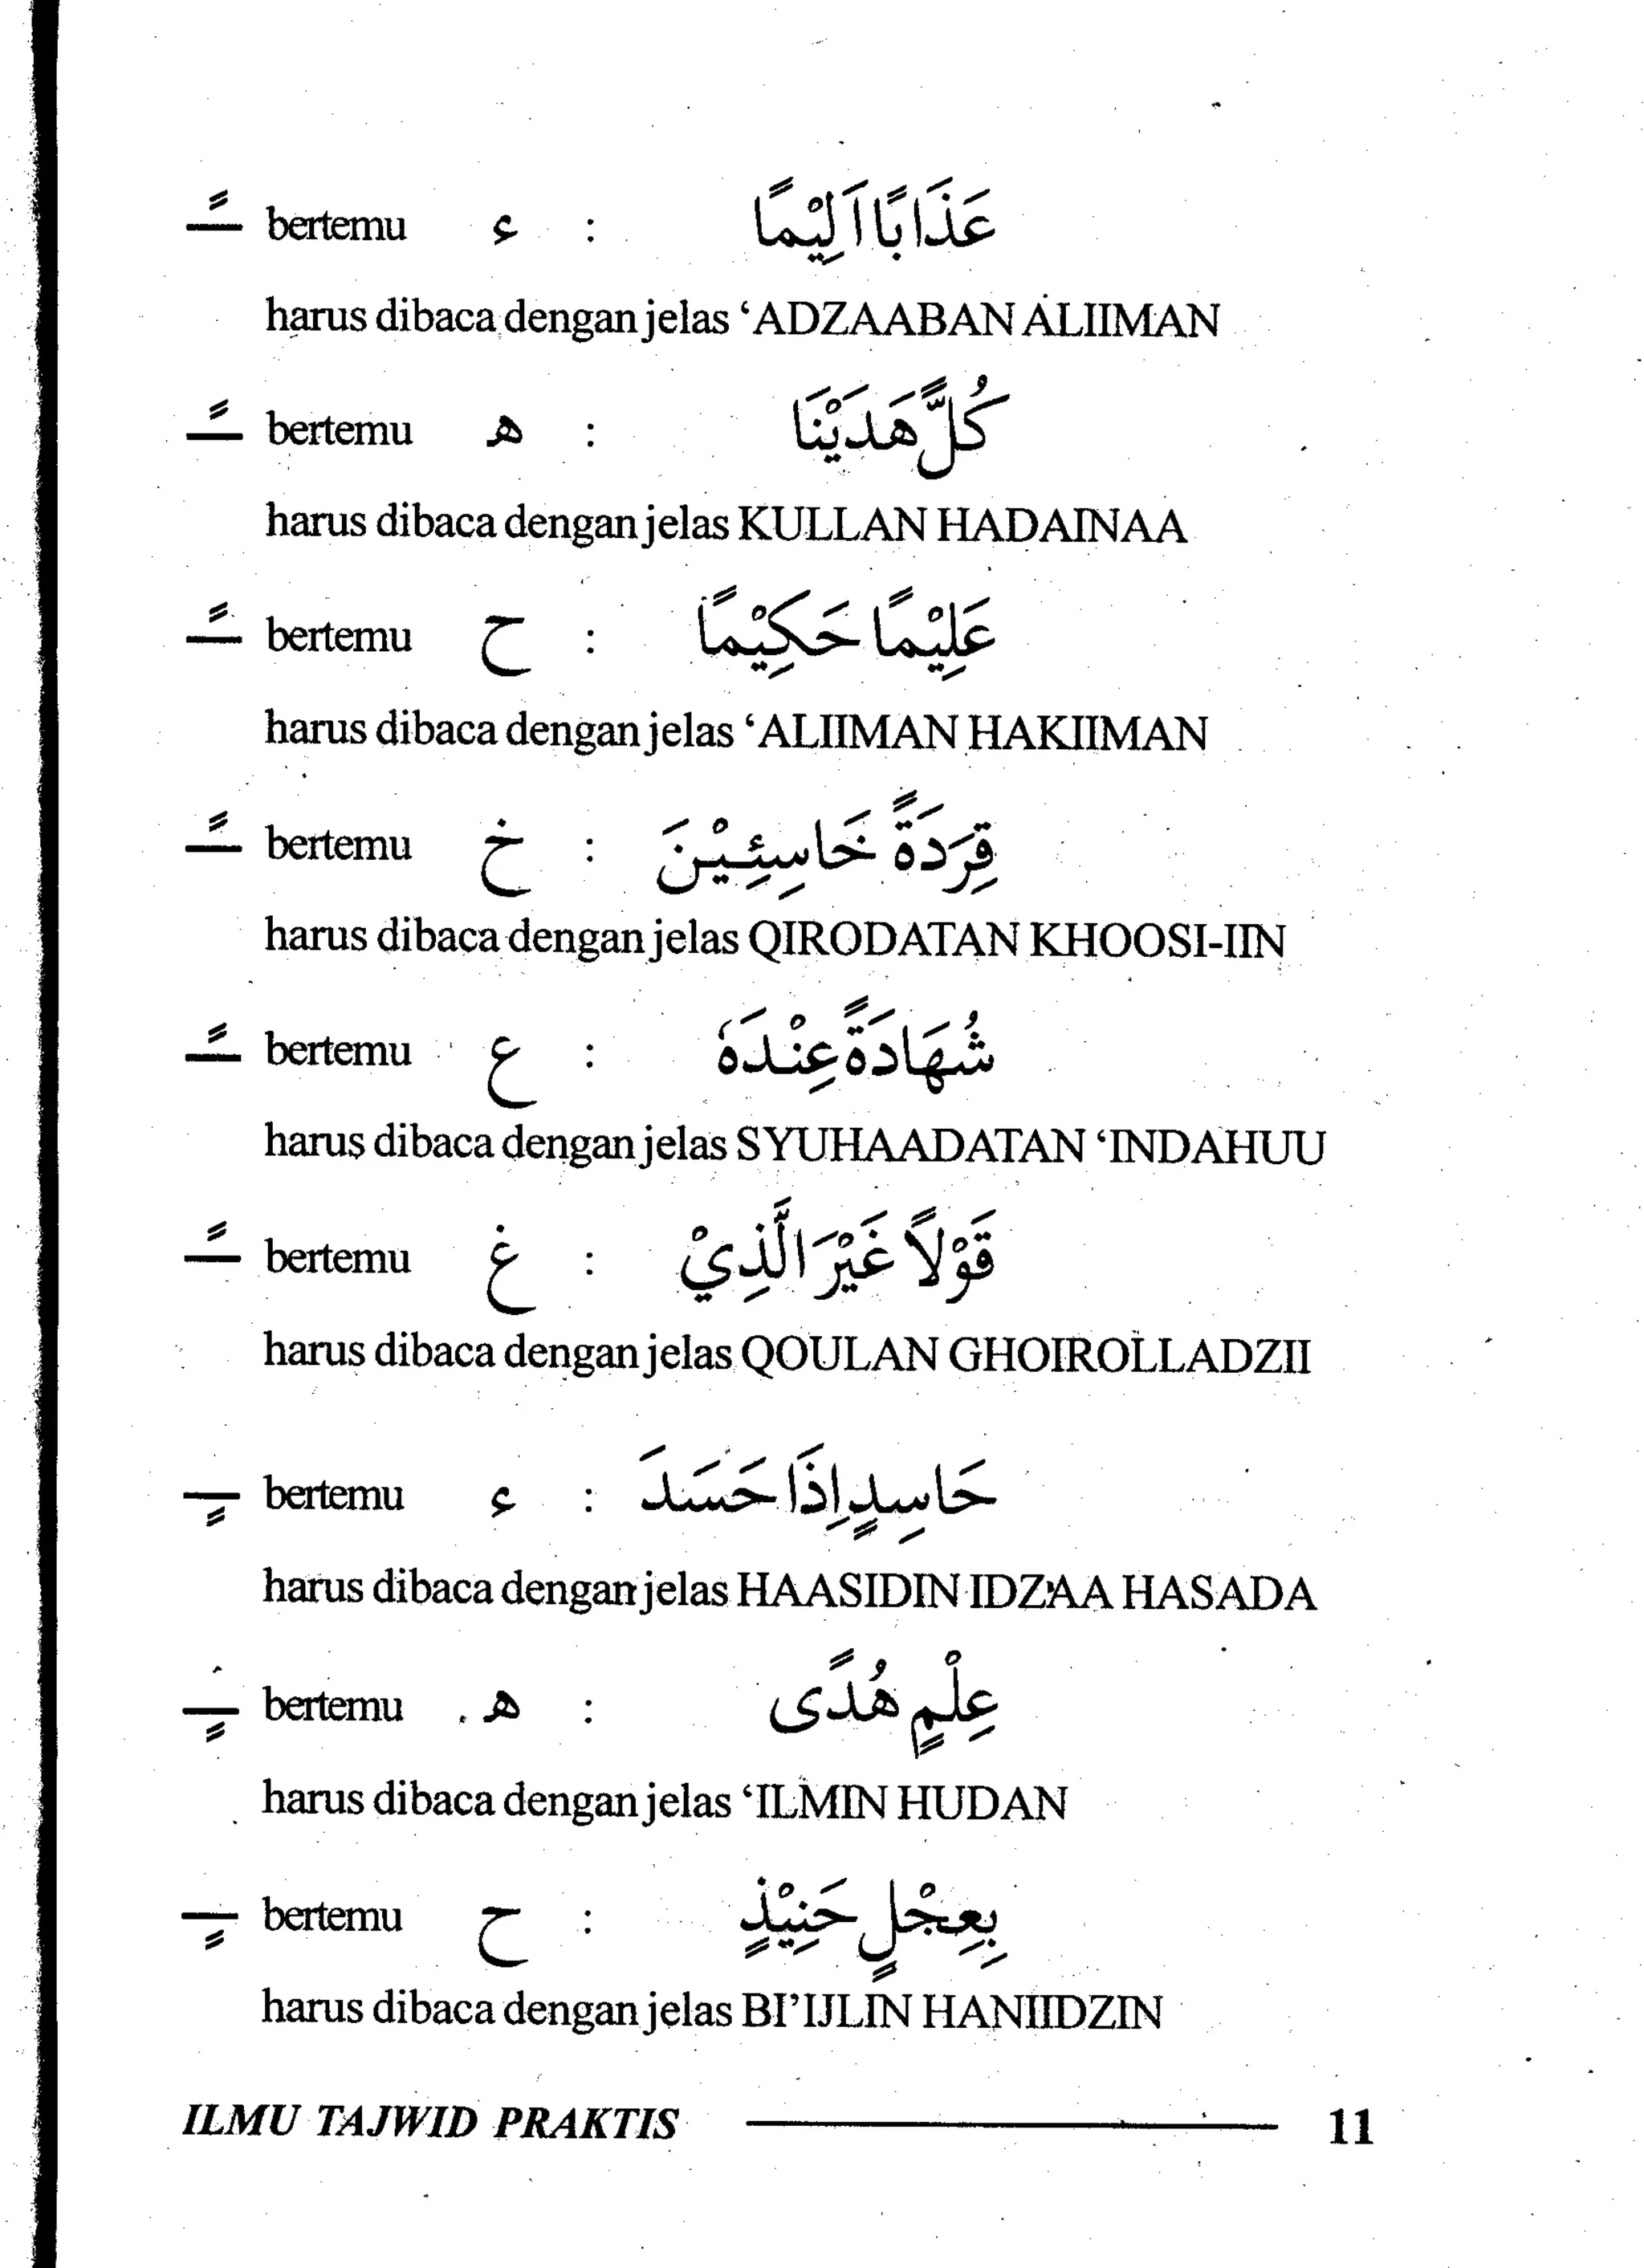 ـًـ bertemu ء : عَذَابًا اَلِيْمًا
harus dibaca dengan jelas ‘ADZAABAN ALIIMAN
ـًـ bertemu ﻫ : كُلًّ هَدَيْنَا
harus dibaca dengan jelas KULLAN HADAINAA
ـًـ bertemu ح : عَلِيْمًا حَكِيْمًا
harus dibaca dengan jelas ‘ALIIMAN HAKIIMAN
ـًـ bertemu خ : قِرَدَةً خَاسِئِيْنَ
harus dibaca dengan jelas QIRODATAN KHOOSI-IIN
ـًـ bertemu ع : شُهَادَةً عِنْدَهٗ
harus dibaca dengan jelas SYUHAADATAN ‘INDAHUU
ـًـ bertemu غ : قَوْلًا غَيْرَ الَّذِيْ
harus dibaca dengan jelas QOULAN GHOIROLLADZII
ـٍـ bertemu ء : حَاسِدٍ اِذَا حَسَدَ
harus dibaca dengan jelas HAASIDIN IDZAA HASADA
ـٍـ bertemu ﻫ : عِلْمٍ هُدًى
harus dibaca dengan jelas ‘ILMIN HUDAN
ـٍـ bertemu ح : بِعِجْلٍ حَنِيْذٍ
harus dibaca dengan jelas BI’IJLIN HANIIDZIN
ILMU TAJWID PRAKTIS 11